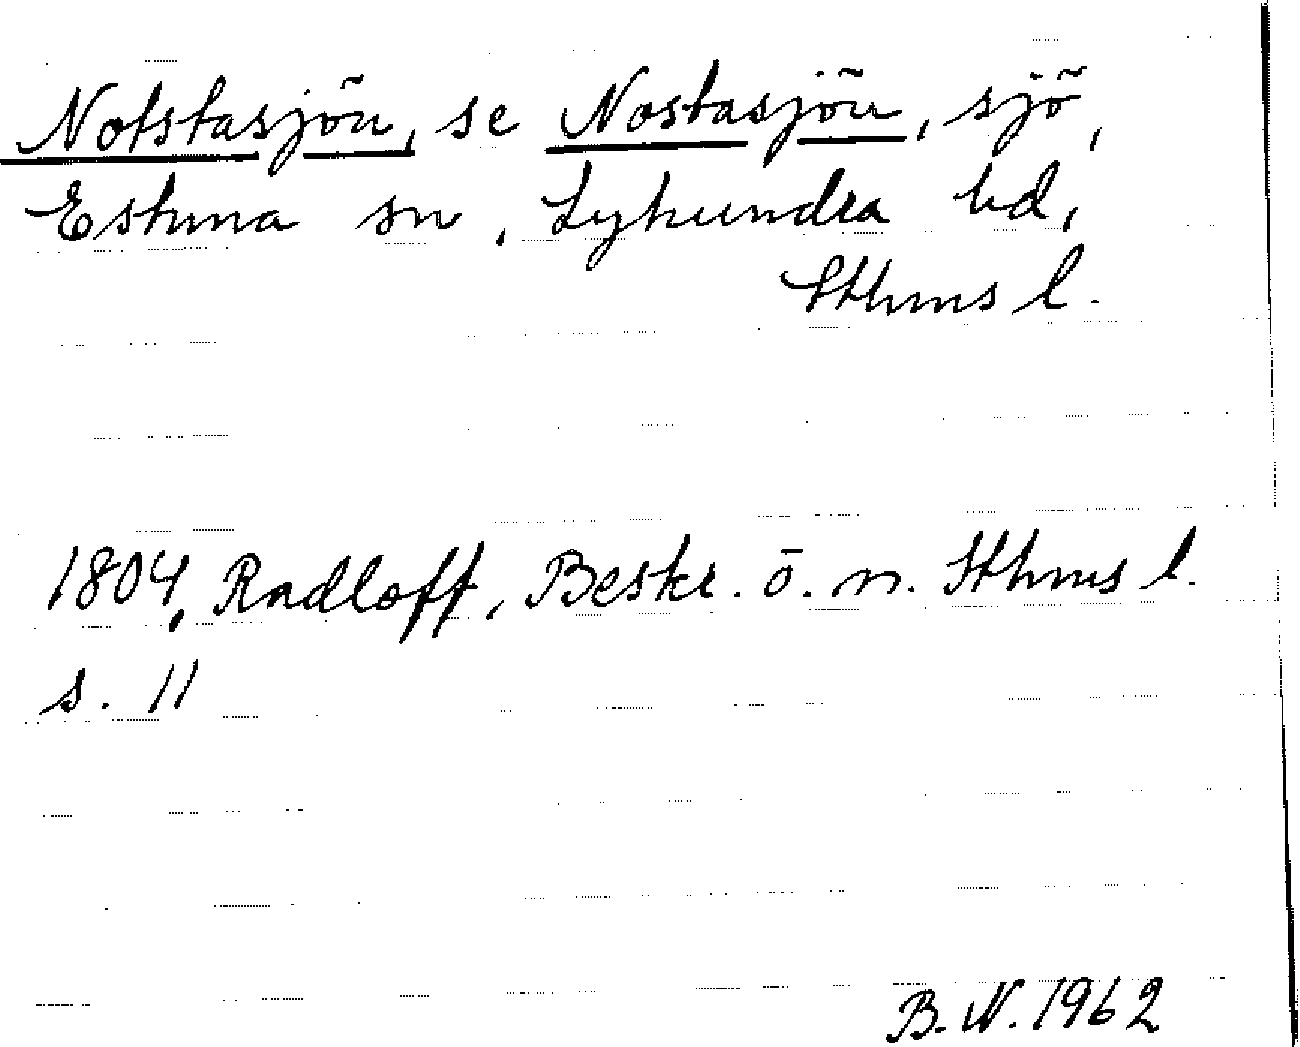 Notstasjön, se Nostasjön, sjö,
Estuna sn, Lyhundra hd,
Sthms l.
1804, Radloff, Beskr. ö. n. Sthms l.
s. 11
B. N. 1962